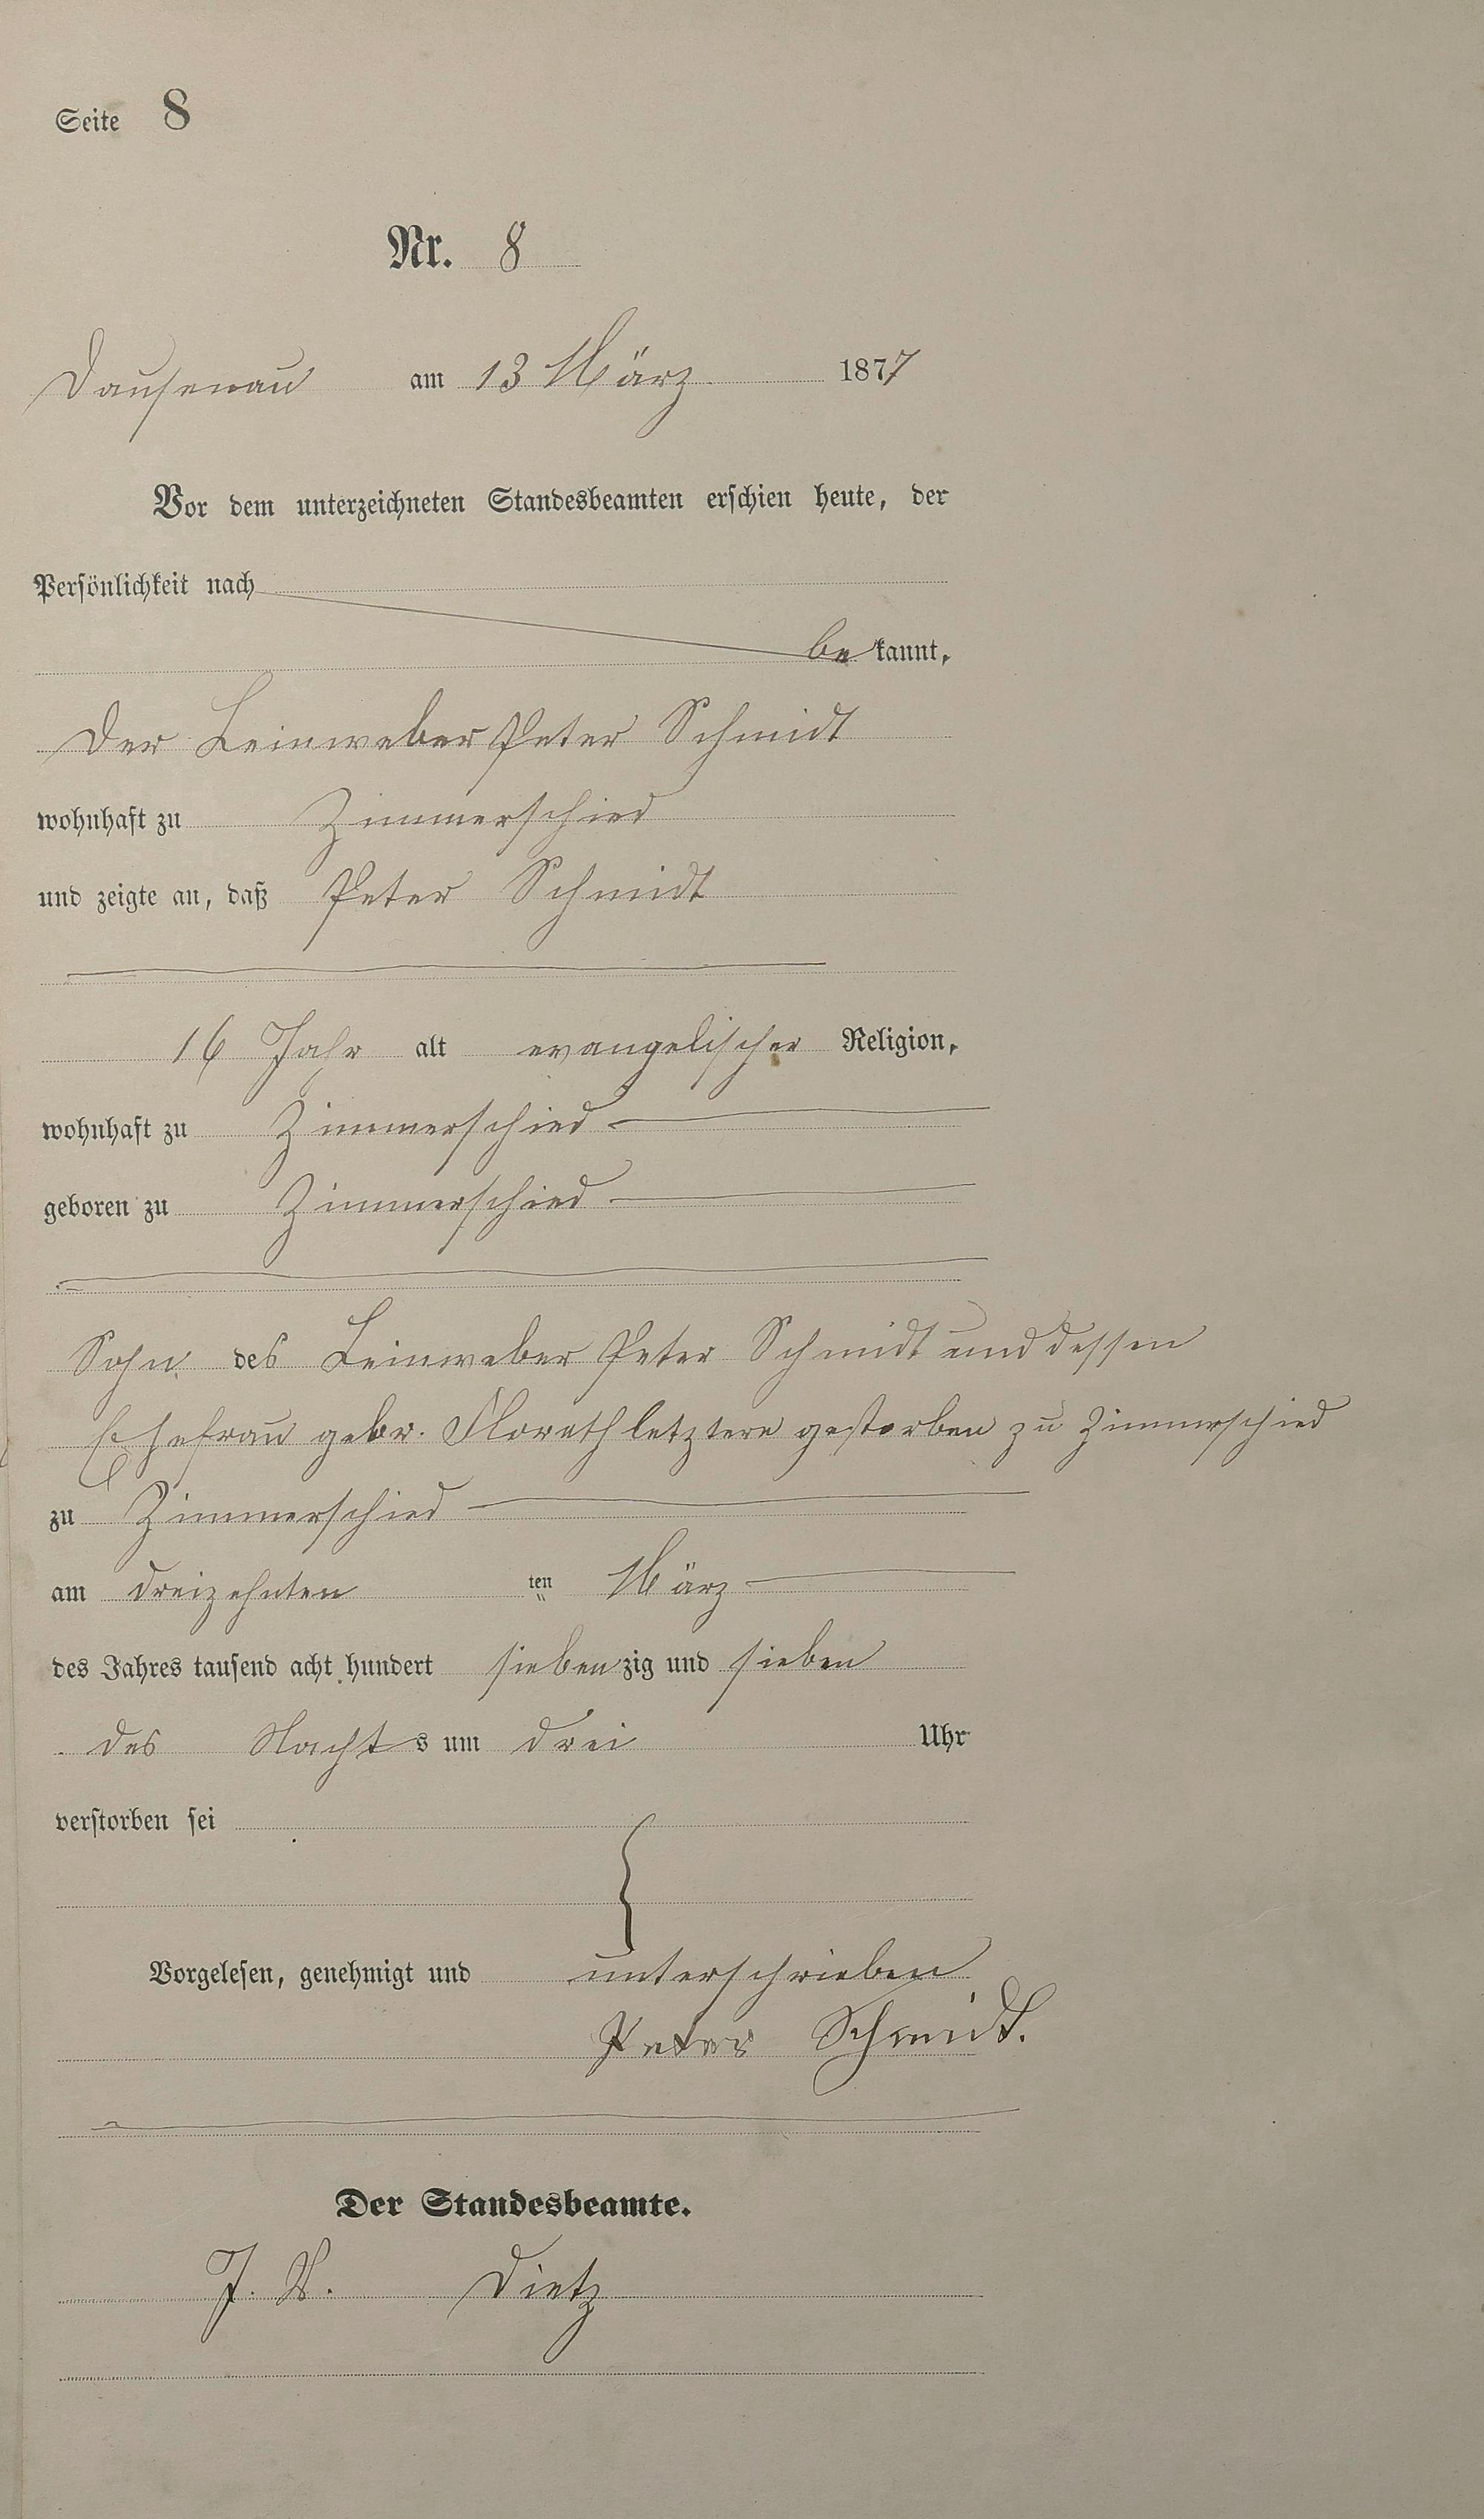 Seite 8
Nr. 8
Dausenau am 13 März 1877
Vor dem unterzeichneten Standesbeamten erschien heute, der
Persönlichkeit nach
bekannt,
Der Leinweber Peter Schmidt
wohnhaft zu Zimmerschied
und zeigte an, daß Peter Schmidt
16 Jahr alt evangelischer Religion,
wohnhaft zu Zimmerschied
geboren zu Zimmerschied
Sohn des Leinweber Peter Schmidt und dessen
Ehefrau gebr. Florath letztere gestorben zu Zimmerschied
zu Zimmerschied
am dreizehnten ten März
des Jahres tausend acht hundert siebenzig und sieben
des Nachts um drei Uhr
verstorben sei
Vorgelesen, genehmigt und unterschrieben
Peter Schmidt.
Der Standesbeamte.
J. V. Dietz